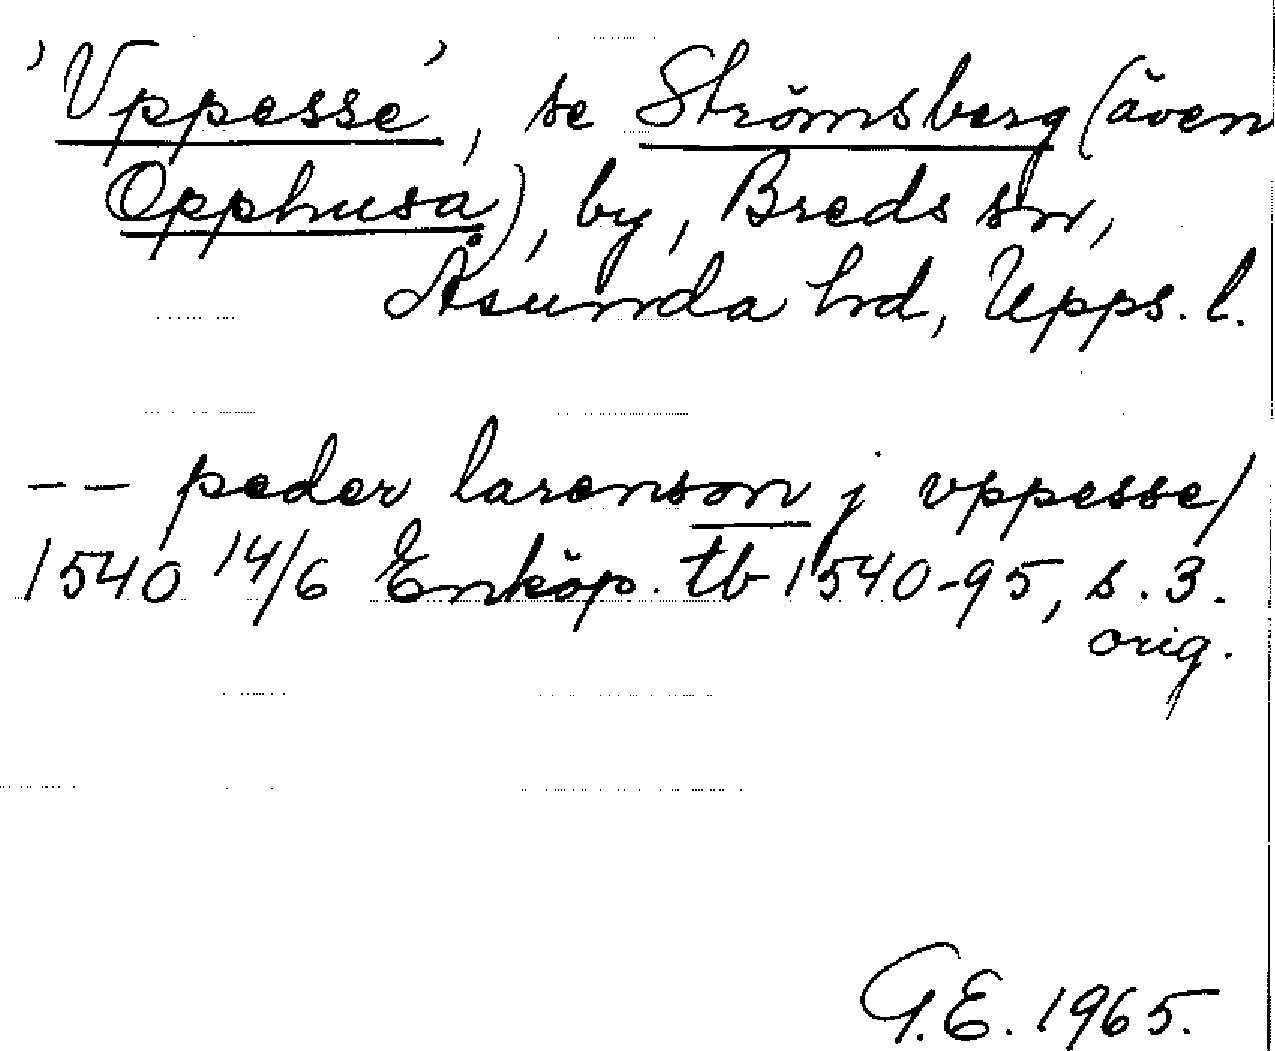 'Vppesse', se Strömsberg (även
Opphusa), by, Breds sn,
Åsunda hd, Upps. l.
-- peder larenson j vppesse/
1540 14/6 Enköp. tb 1540-95, s. 3.
orig.
G.E. 1965.